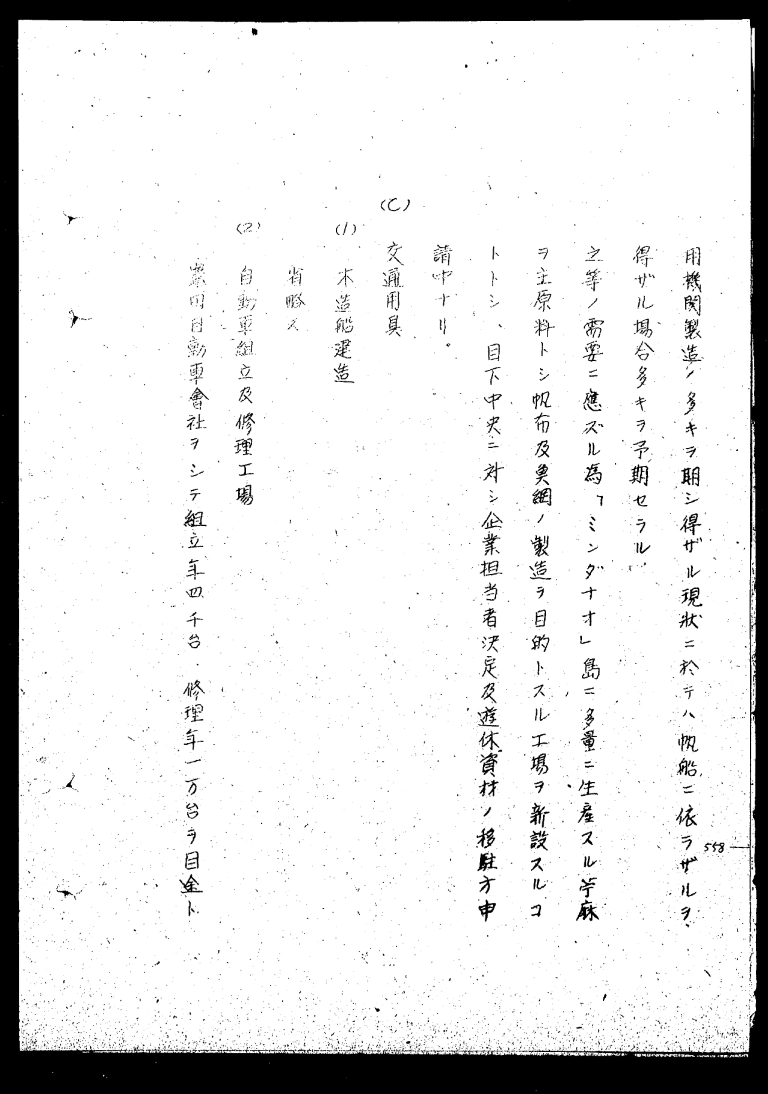 用機関製造ノ多キヲ期シ得ザル現状ニ於テハ帆船ニ依ラザルヲ、
得ザル場合多キヲ予期セラル、
之等ノ需要ニ應ズル為「ミンダナオ」島ニ多量ニ生産スル苧麻
ヲ主原料トシ帆布及奥網ノ製造ヲ目的トスル工場ヲ新設スルコ
トトシ、目下中央ニ対シ企業担当者決定及遊休資材ノ移駐方申
請中ナリ。
(C) 交通用具
(1) 木造船建造
省略ス
(2) 自動車組立及修理工場
用自動車會社ヲシテ組立年四千台、修理年一万台ヲ目途ト
558